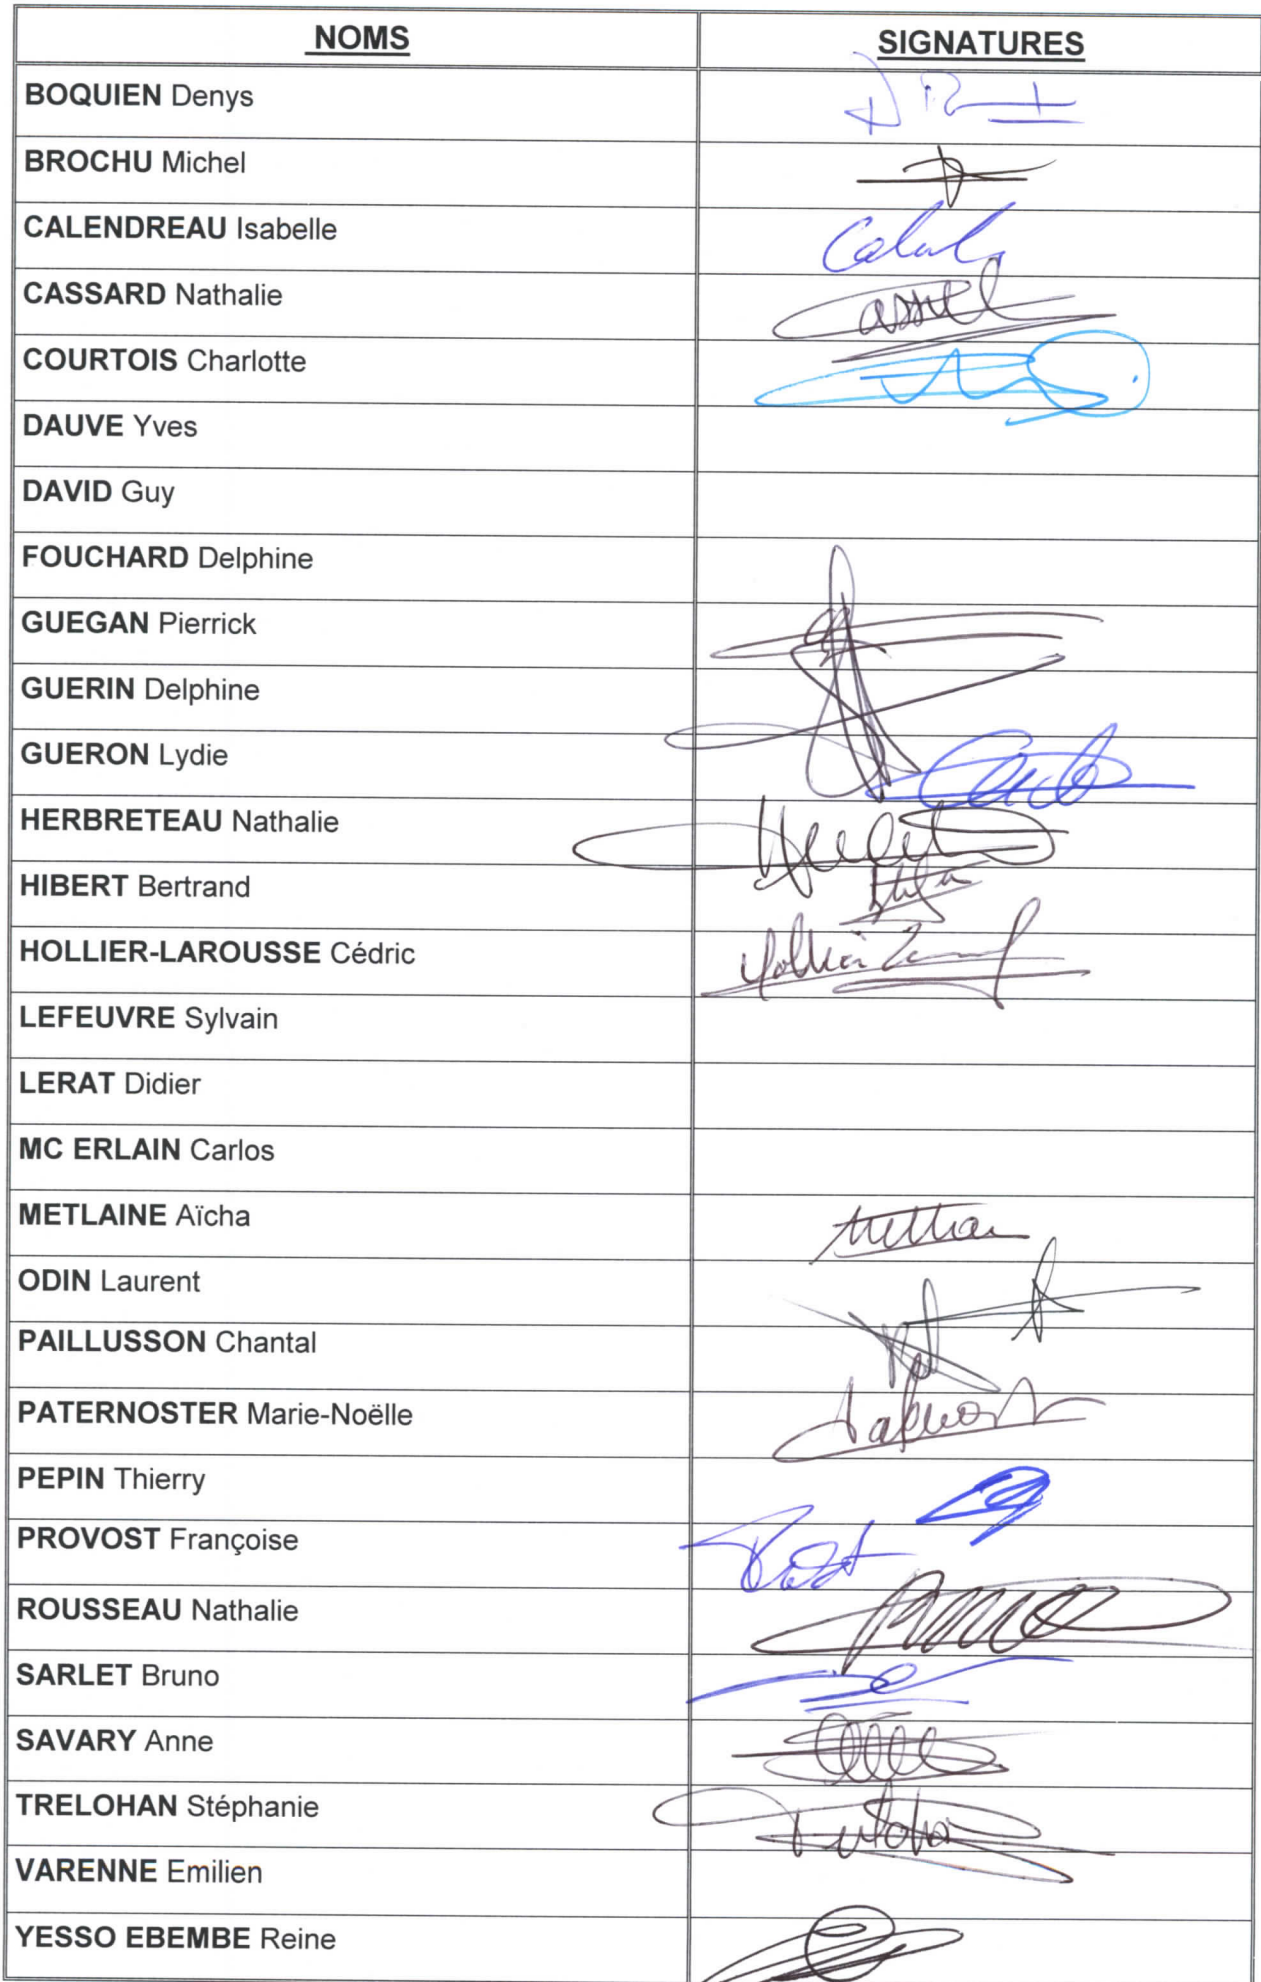 NOMS SIGNATURES
BOQUIEN Denys
BROCHU Michel
CALENDREAU Isabelle
CASSARD Nathalie
COURTOIS Charlotte
DAUVE Yves
DAVID Guy
FOUCHARD Delphine
GUEGAN Pierrick
GUERIN Delphine
GUERON Lydie
HERBRETEAU Nathalie
HIBERT Bertrand
HOLLIER-LAROUSSE Cédric
LEFEUVRE Sylvain
LERAT Didier
MC ERLAIN Carlos
METLAINE Aïcha
ODIN Laurent
PAILLUSSON Chantal
PATERNOSTER Marie-Noëlle
PEPIN Thierry
PROVOST Françoise
ROUSSEAU Nathalie
SARLET Bruno
SAVARY Anne
TRELOHAN Stéphanie
VARENNE Emilien
YESSO EBEMBE Reine